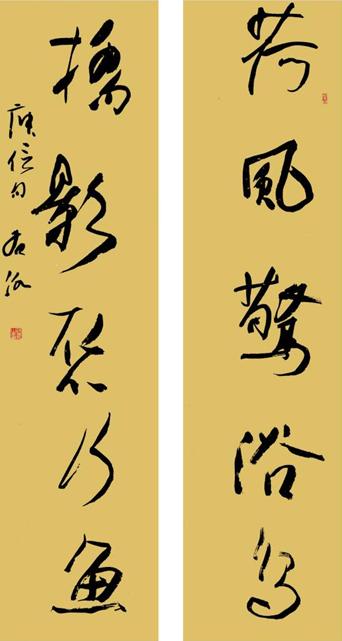 荷風驚浴鳥
橋影聚行魚
庾信句